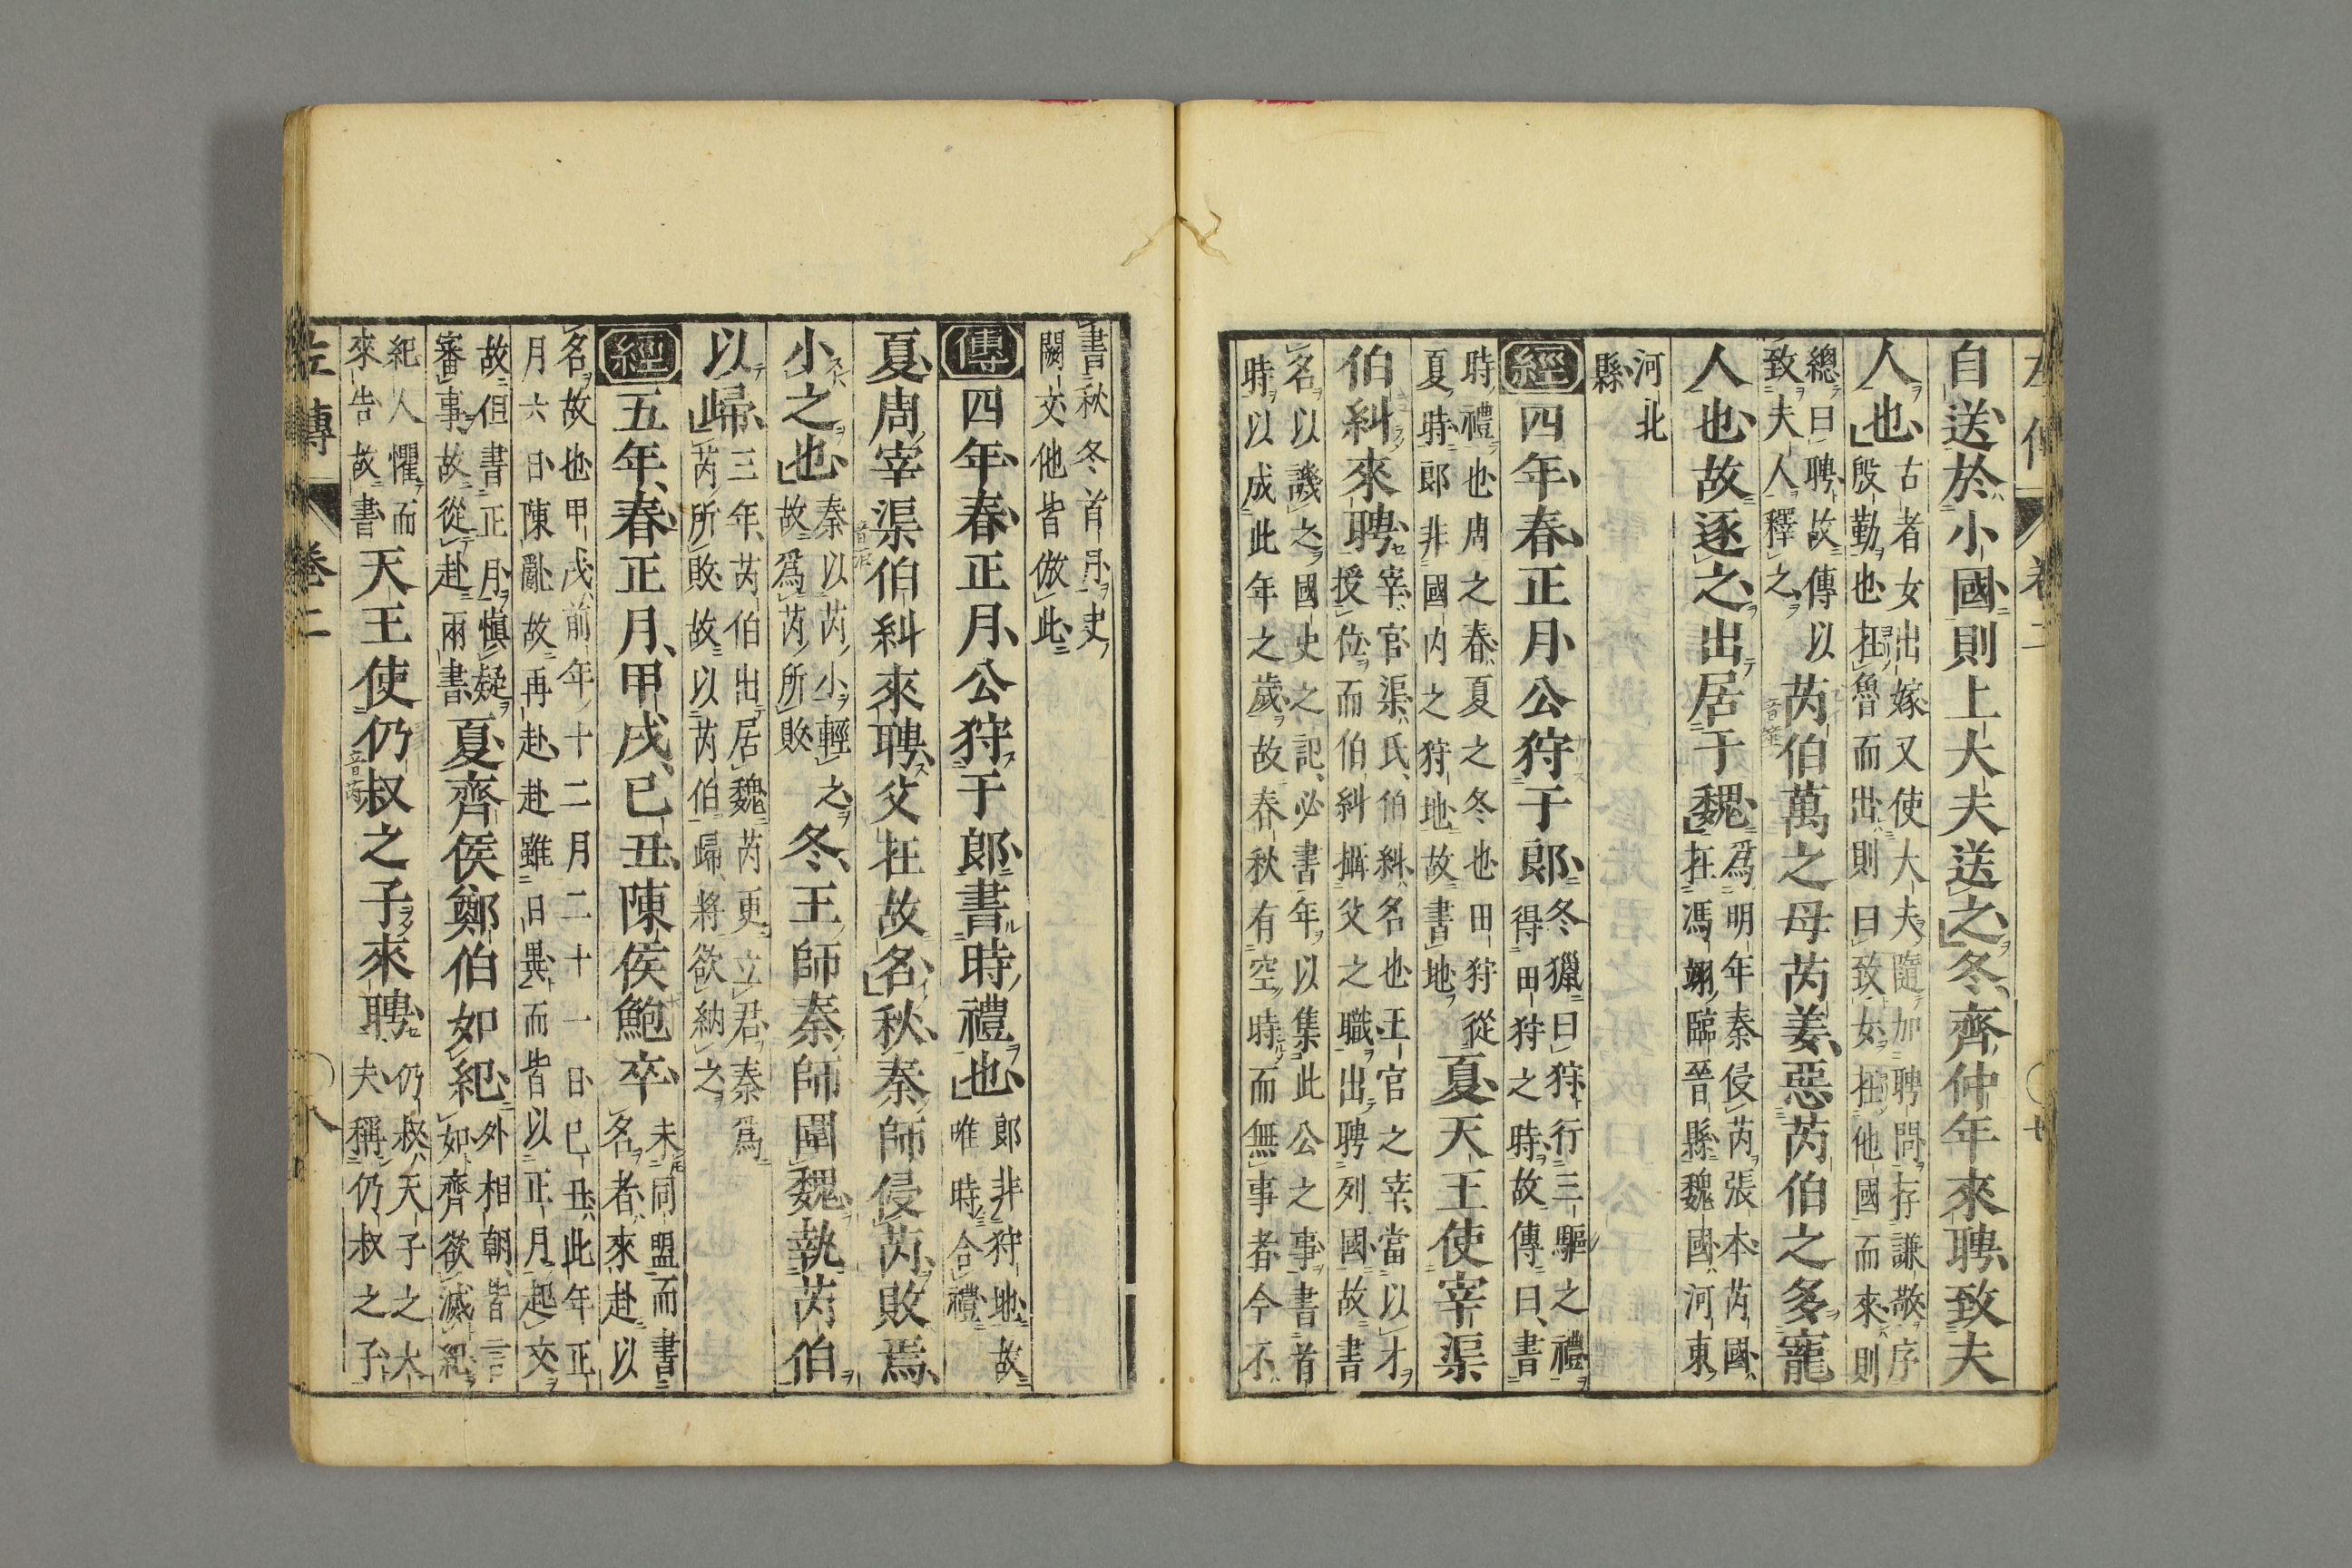 左傳 卷二 七
自送於小國則上大夫送之冬齊仲年來聘致夫
人也古者女出嫁又使大夫隨加聘問存謙敬序
殷勤也在魯而出則曰致女在他國而來則
總曰聘故傳以
致夫人釋之芮伯萬之母芮姜惡芮伯之多寵
人也故逐之出居于魏爲明年秦侵芮張本芮國
在馮翊臨晉縣魏國河東
河北
縣
經四年春正月公狩于郎冬獵曰狩行三驅之禮
得田狩之時故傳曰書
時禮也周之春夏之冬也田狩從
夏時郎非國内之狩地故書地夏天王使宰渠
伯糾來聘宰官渠氏伯糾名也王官之宰當以才
授位而伯糾攝父之職出聘列國故書
名以譏之國史之記必書年以集此公之事書首
時以成此年之歲故春秋有空時而無事者今不
書秋冬首月史
闕文他皆倣此
傳四年春正月公狩于郎書時禮也郎非狩地故
唯時合禮
夏周宰渠伯糾來聘父在故名秋秦師侵芮敗焉
小之也秦以芮小輕之
故爲芮所敗冬王師秦師圍魏執芮伯
以歸三年芮伯出居魏芮更立君秦爲
芮所敗故以芮伯歸將欲納之
經五年春正月甲戌己丑陳侯鮑卒未同盟而書
名者來赴以
名故也甲戌前年十二月二十一日己丑此年正
月六日陳亂故再赴赴雖日異而皆以正月起文
故但書正月愼疑
審事故從赴兩書夏齊侯鄭伯如紀外相朝皆言
如齊欲滅紀
紀人懼而
來告故書天王使仍叔之子來聘仍叔天子之大
夫稱仍叔之子
左傳 卷二 八